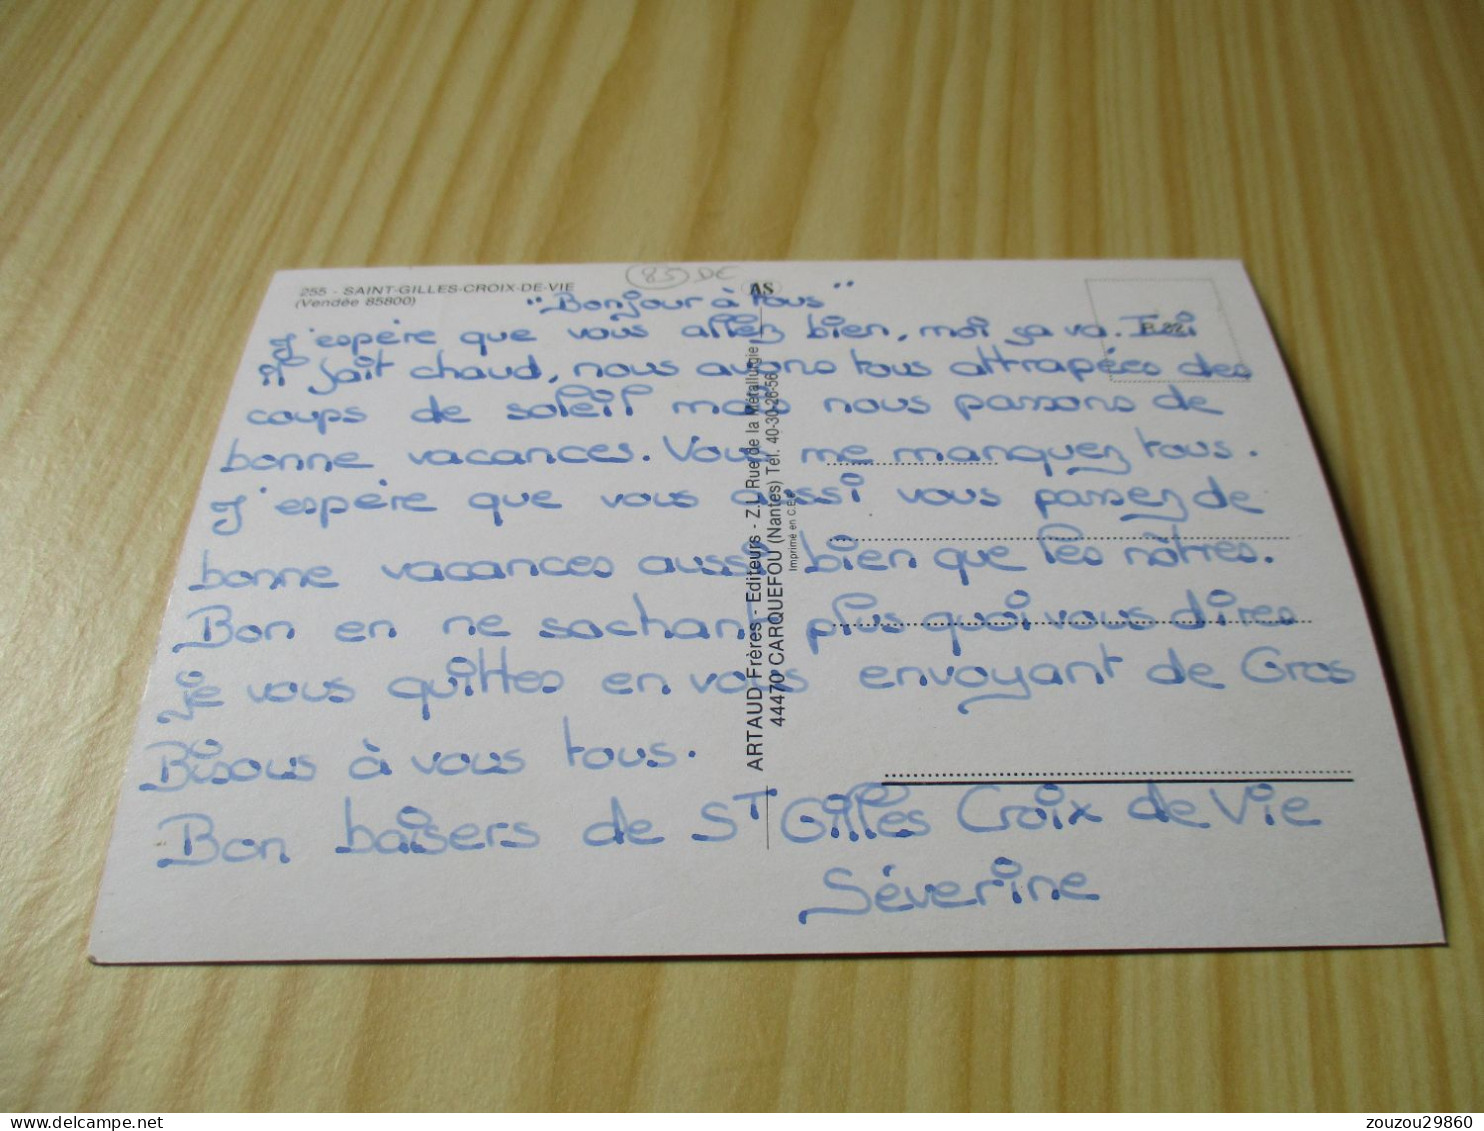 255 - SAINT-GILLES-CROIX-DE-VIE
(Vendée 85800)
85 DE
AS
"Bonjour à tous"
J'espère que vous allez bien, moi ça va. Ici
il fait chaud, nous avons tous attrapées des
coups de soleil mais nous passons de
bonne vacances. Vous me manquez tous.
J'espère que vous aussi vous passez de
bonne vacances aussi bien que les nôtres.
Bon en ne sachant plus quoi vous dires
je vous quittes en vous envoyant de Gros
Bisous à vous tous.
Bon baisers de ST Gilles Croix de Vie
Séverine
ARTAUD Frères - Editeurs - Z.I. Rue de la Métallurgie
44470 CARQUEFOU (Nantes) Tél. 40-30-26-56
Imprimé en C.E.E.
zouzou29860